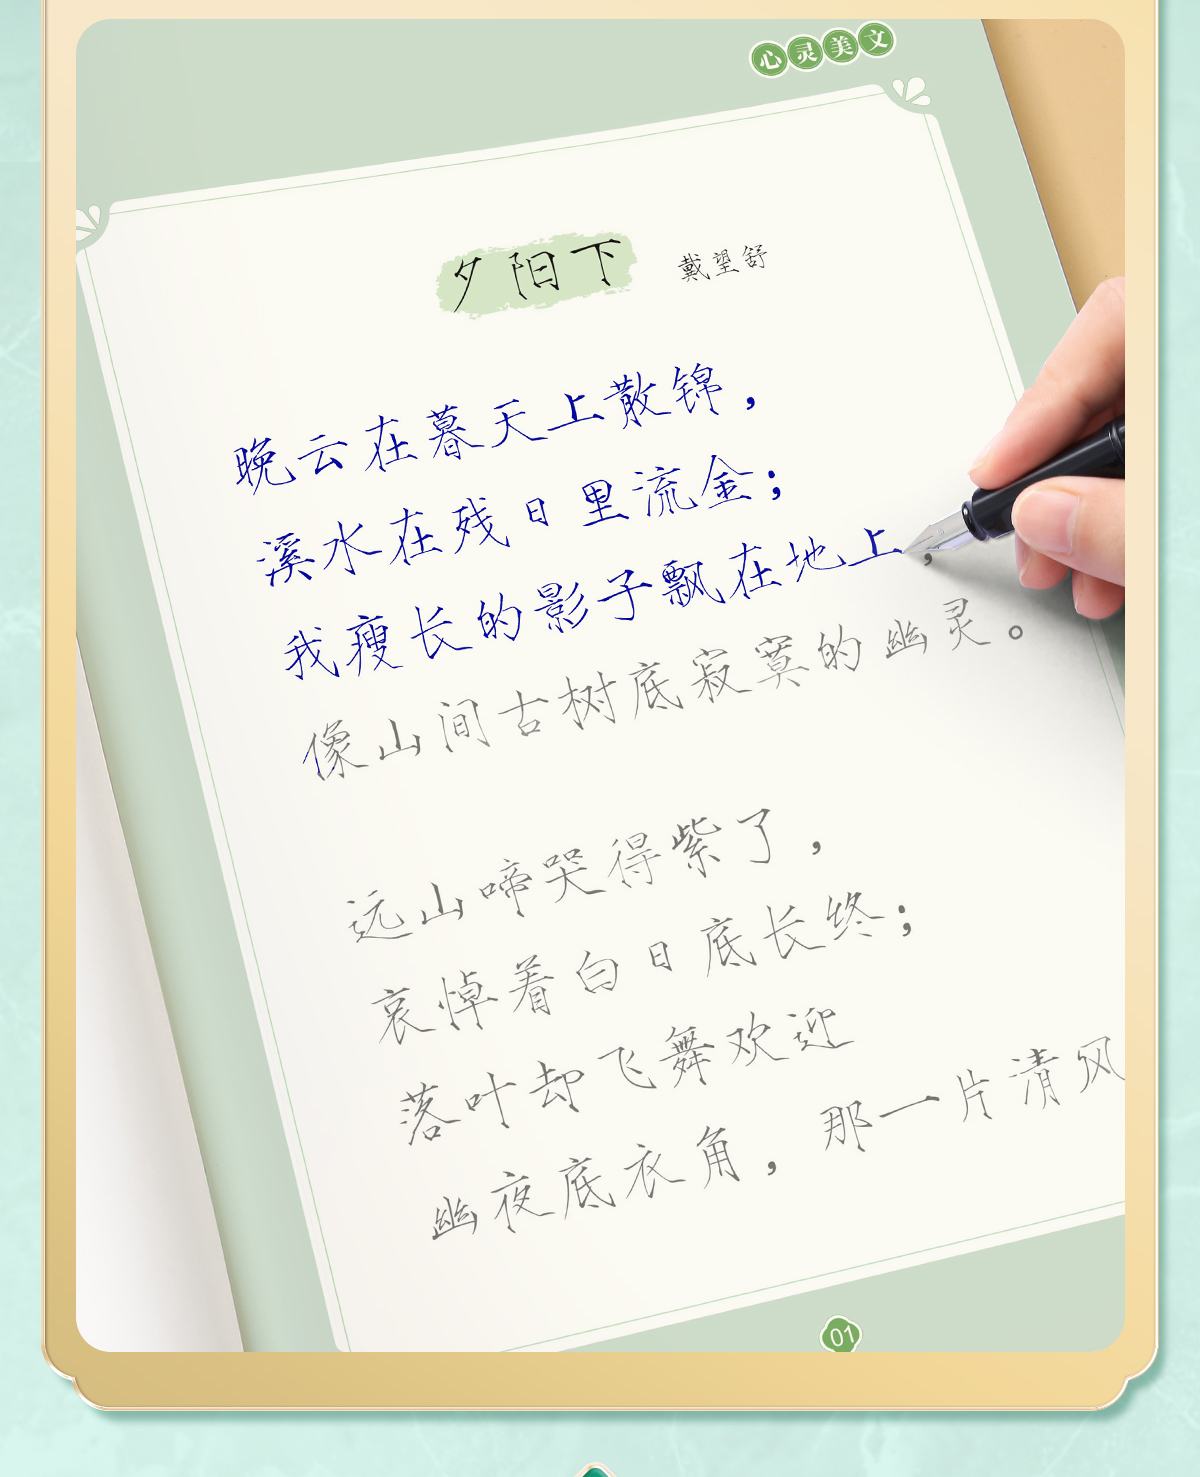 心灵美文
夕阳下 戴望舒
晚云在暮天上散锦，
溪水在残日里流金；
我瘦长的影子飘在地上，
像山间古树底寂寞的幽灵。
远山啼哭得紫了，
哀悼着白日底长终；
落叶却飞舞欢迎
幽夜底衣角，那一片清风
01